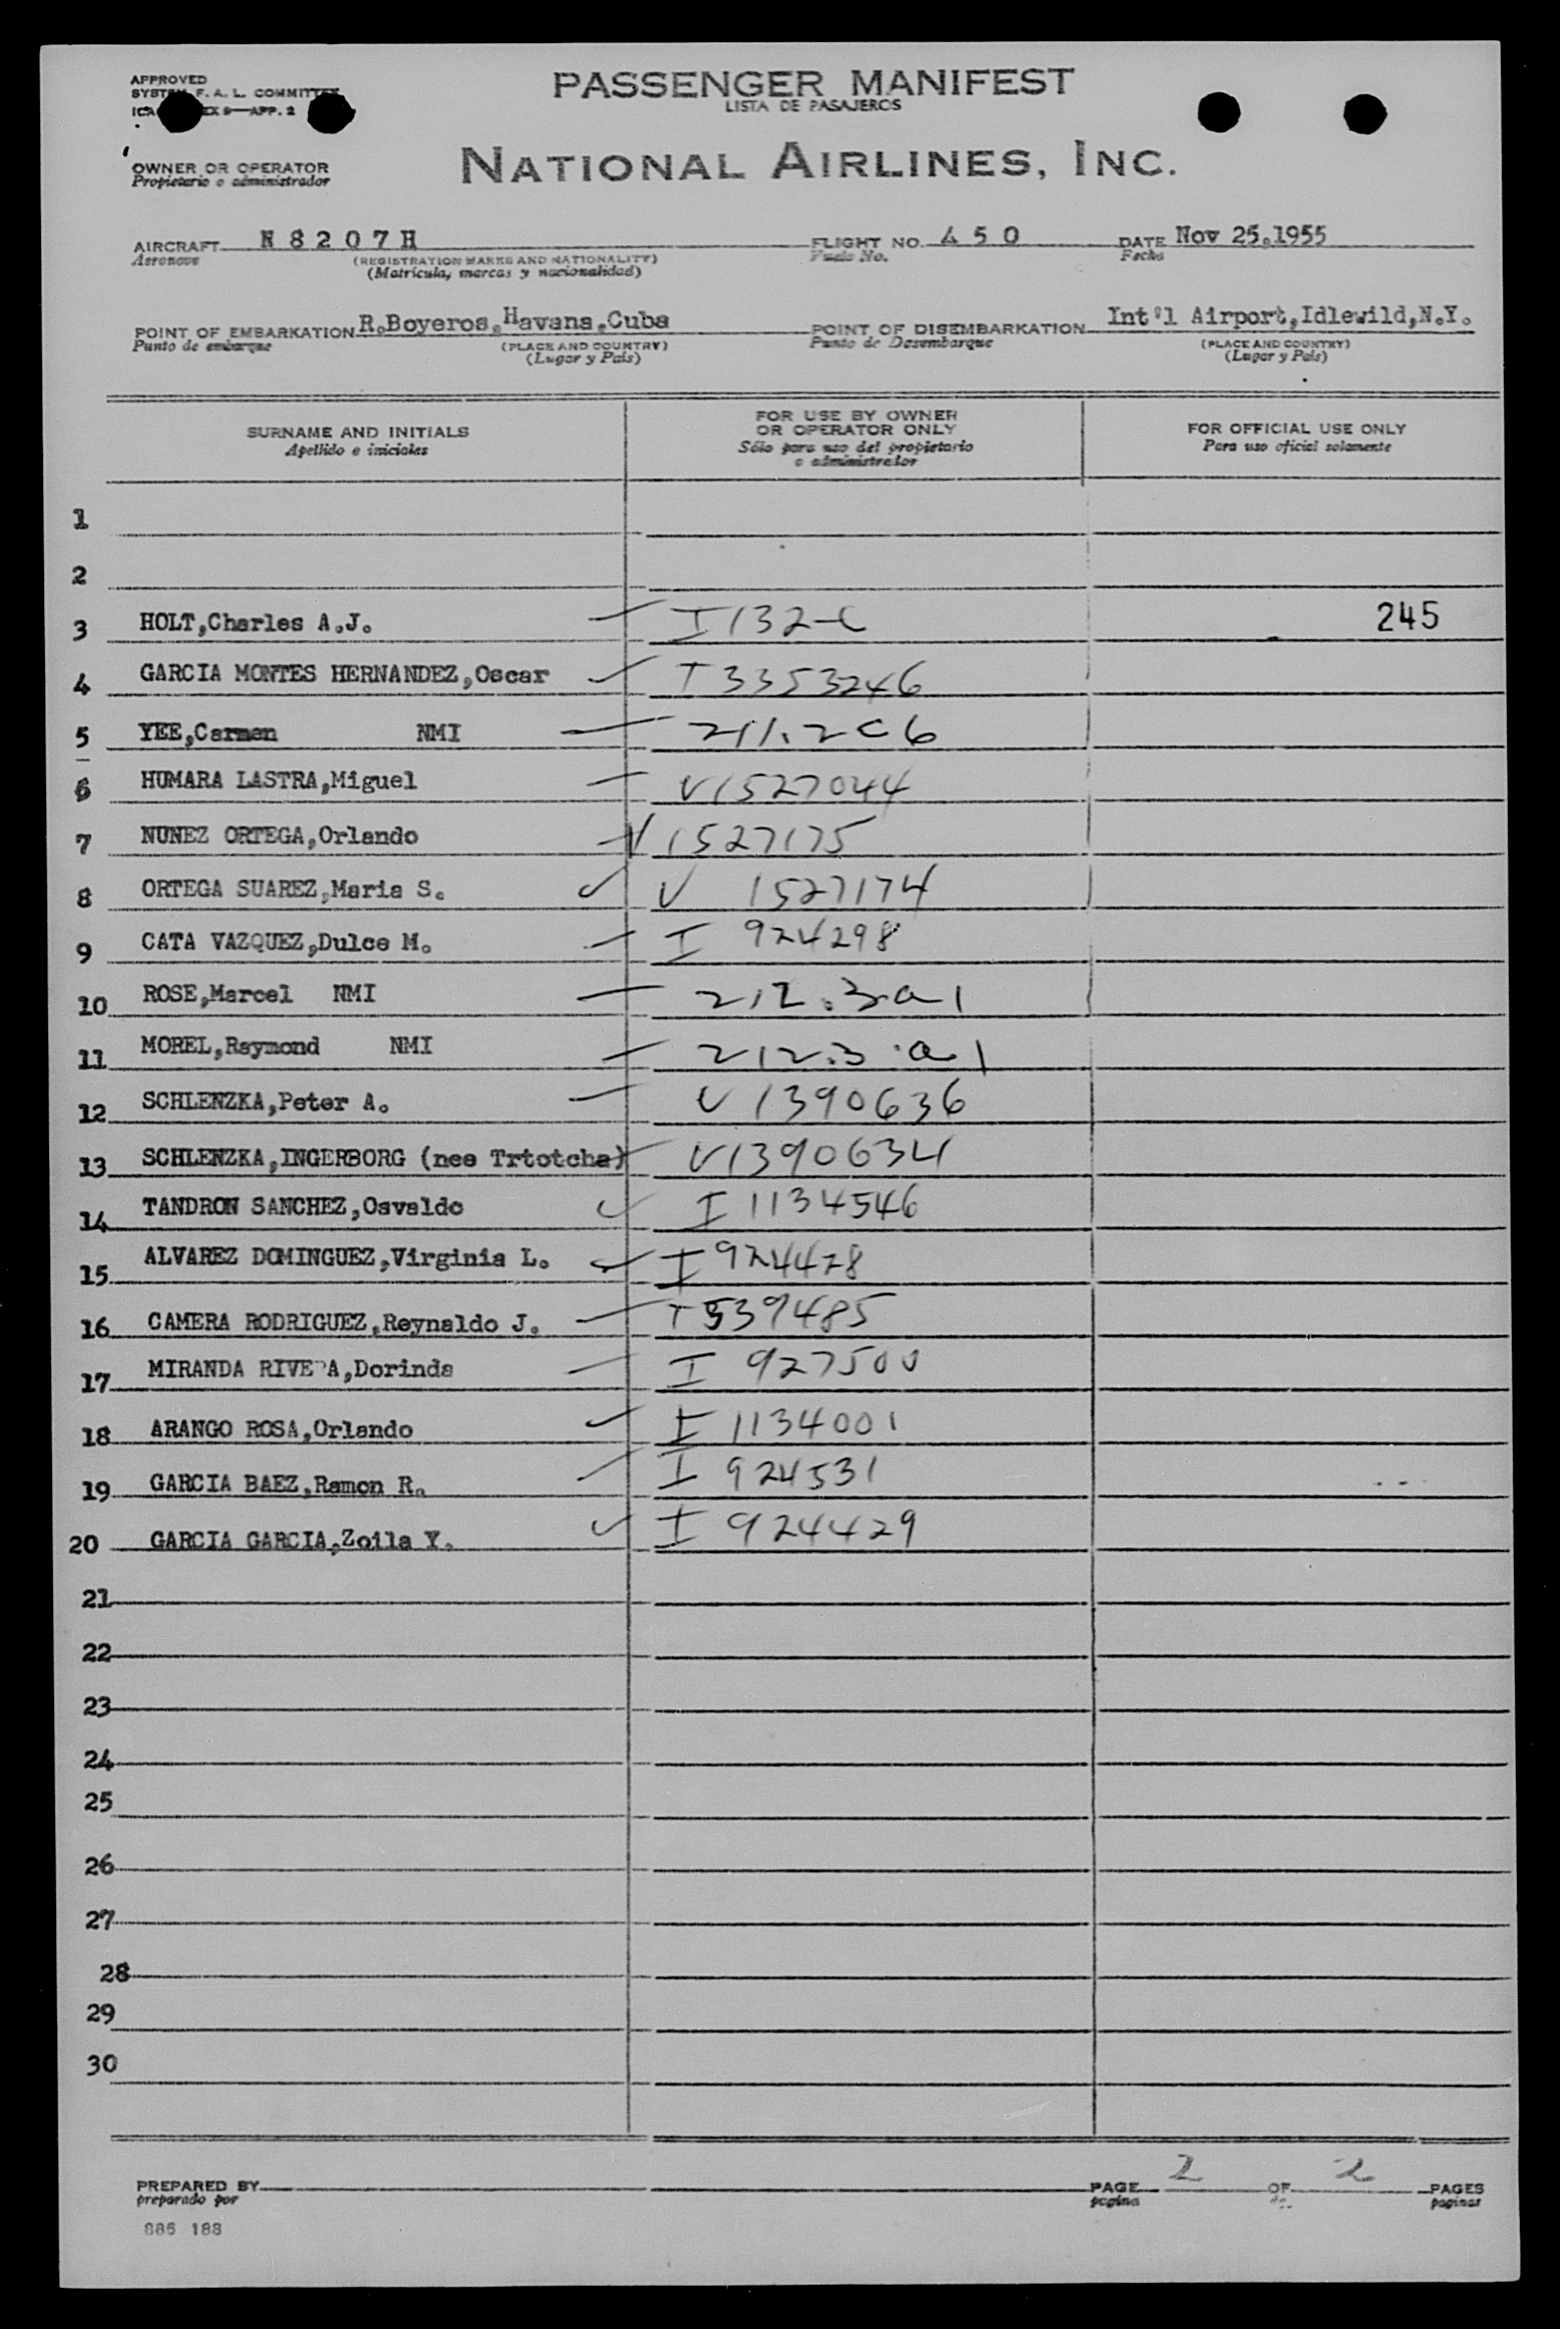 APPROVED
SYSTEM F. A. L. COMMITTEE
9—APP. 2
PASSENGER MANIFEST
LISTA DE PASAJEROS
OWNER OR OPERATOR
Propietario o administrador
NATIONAL AIRLINES, INC.
AIRCRAFT N 8 2 0 7 H FLIGHT NO. 4 5 0 DATE Nov 25.1955
Aeronave (REGISTRATION MARKS AND NATIONALITY) Vuelo No. Fecha
(Matricula, marcas y nacionalidad)
POINT OF EMBARKATION R.Boyeros,Havana,Cuba POINT OF DISEMBARKATION Int'l Airport,Idlewild,N.Y.
Punto de embarque (PLACE AND COUNTRY) Punto de Desembarque (PLACE AND COUNTRY)
(Lugar y País) (Lugar y País)
SURNAME AND INITIALS
Apellido e iniciales
FOR USE BY OWNER
OR OPERATOR ONLY
Sólo para uso del propietario
o administrador
FOR OFFICIAL USE ONLY
Para uso oficial solamente
1
2
3 HOLT,Charles A.J. I 132-C 245
4 GARCIA MONTES HERNANDEZ,Oscar T 3353246
5 YEE,Carmen NMI 211.2C6
6 HUMARA LASTRA,Miguel V1527044
7 NUNEZ ORTEGA,Orlando V 1527175
8 ORTEGA SUAREZ,Maria S. V 1527174
9 CATA VAZQUEZ,Dulce M. I 924298
10 ROSE,Marcel NMI 212.3a1
11 MOREL,Raymond NMI 212.3.a1
12 SCHLENZKA,Peter A. V1390636
13 SCHLENZKA,INGERBORG (nee Trtotcha) V1390634
14 TANDRON SANCHEZ,Osvaldo I 1134546
15 ALVAREZ DOMINGUEZ,Virginia L. I 924428
16 CAMERA RODRIGUEZ,Reynaldo J. T 539485
17 MIRANDA RIVERA,Dorinda I 927500
18 ARANGO ROSA,Orlando I 1134001
19 GARCIA BAEZ,Ramon R. I 924531
20 GARCIA GARCIA,Zoila Y. I 924429
21
22
23
24
25
26
27
28
29
30
PREPARED BY PAGE 2 OF 2 PAGES
preparado por pagina de paginas
886 188